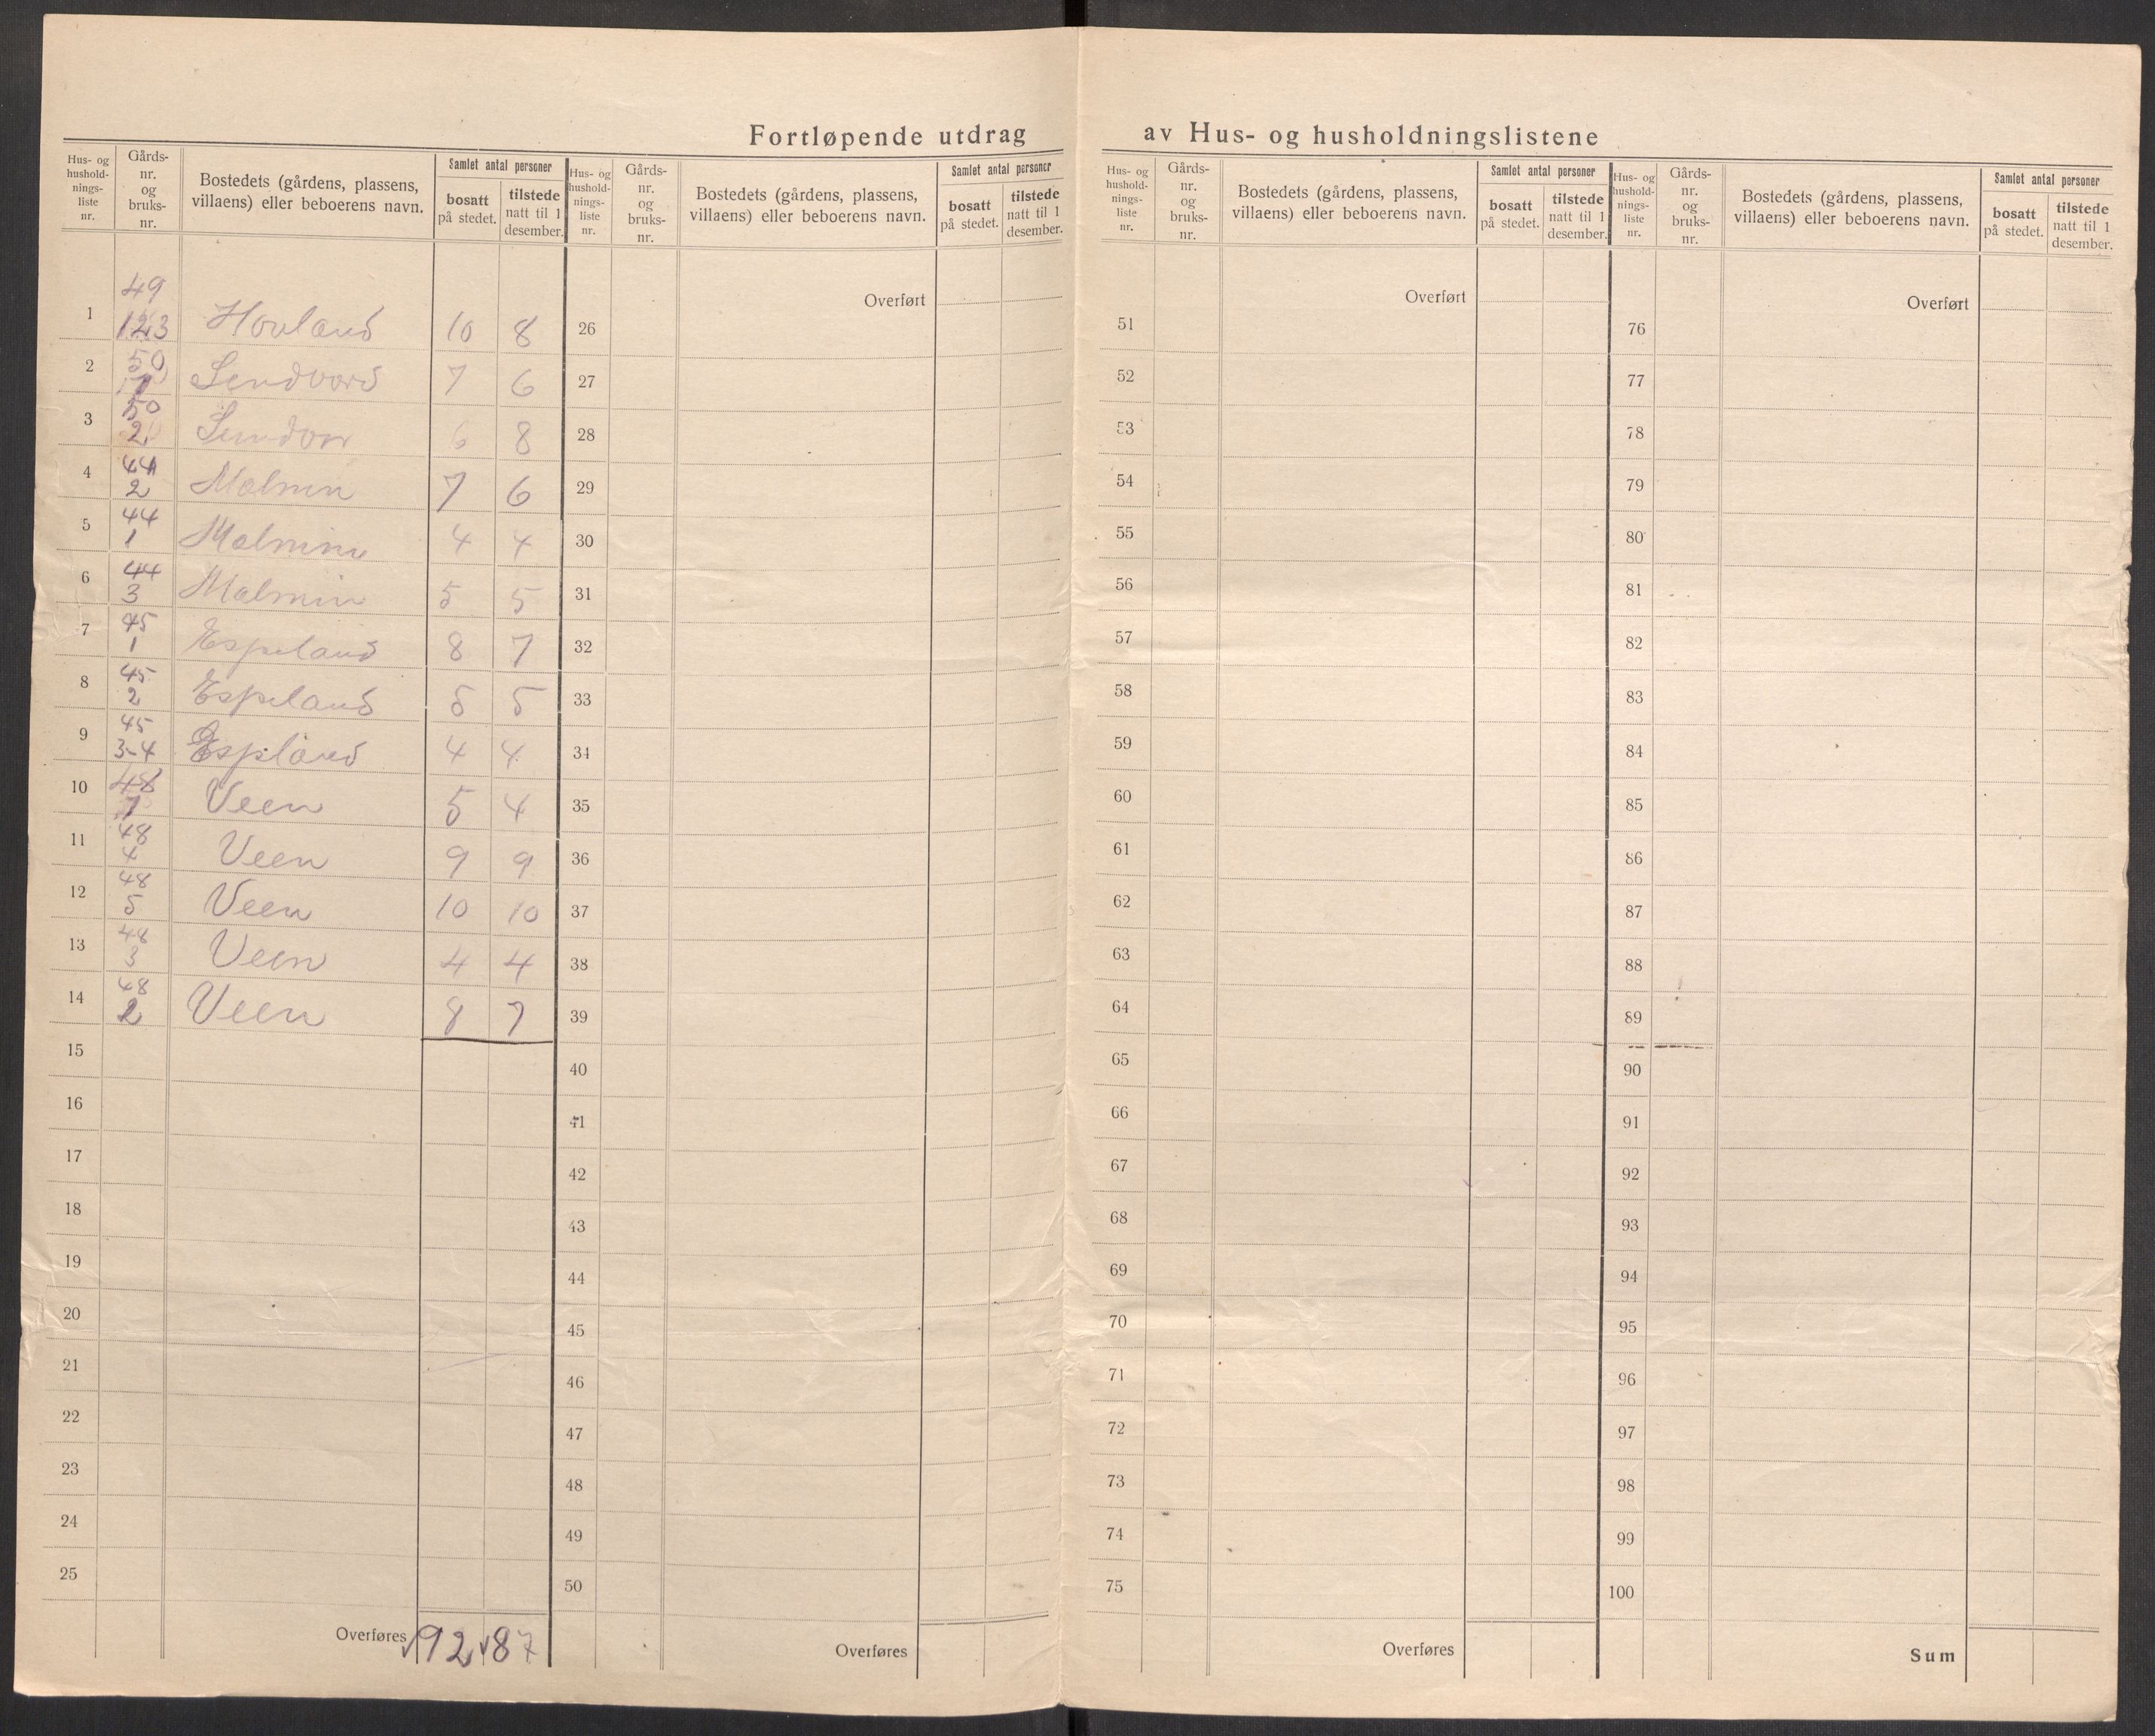 Fortløpende utdrag av Hus- og husholdningslistene
Hus- og
hushold-
nings-
liste
nr.
Gårds-
nr.
og
bruks-
nr.
Bostedets (gårdens, plassens,
villaens) eller beboerens navn.
Samlet antal personer
bosatt
på stedet.
tilstede
natt til 1
desember.
49
1 123 Hovland 10 8
50
2 1 7 6
50
3 2 6 8
44
4 2 Malmin 7 6
44
5 1 Malmin 4 4
44
6 3 Malmin 5 5
45
7 1 Espeland 8 7
45
8 2 Espeland 5 5
45
9 3-4 Espland 4 4
48
10 1 Veen 5 4
48
11 4 Veen 9 9
48
12 5 Veen 10 10
48
13 3 Veen 4 4
48
14 2 Veen 8 7
15
16
17
18
19
20
21
22
23
24
25
Overføres 92 87
Hus- og
hushold-
nings-
liste
nr.
Gårds-
nr.
og
bruks-
nr.
Bostedets (gårdens, plassens,
villaens) eller beboerens navn.
Samlet antal personer
bosatt
på stedet.
tilstede
natt til 1
desember.
Overført
26
27
28
29
30
31
32
33
34
35
36
37
38
39
40
41
42
43
44
45
46
47
48
49
50
Overføres
Hus- og
hushold-
nings-
liste
nr.
Gårds-
nr.
og
bruks-
nr.
Bostedets (gårdens, plassens,
villaens) eller beboerens navn.
Samlet antal personer
bosatt
på stedet.
tilstede
natt til 1
desember.
Overført
51
52
53
54
55
56
57
58
59
60
61
62
63
64
65
66
67
68
69
70
71
72
73
74
75
Overføres
Hus- og
hushold-
nings-
liste
nr.
Gårds-
nr.
og
bruks-
nr.
Bostedets (gårdens, plassens,
villaens) eller beboerens navn.
Samlet antal personer
bosatt
på stedet.
tilstede
natt til 1
desember.
Overført
76
77
78
79
80
81
82
83
84
85
86
87
88
89
90
91
92
93
94
95
96
97
98
99
100
Sum